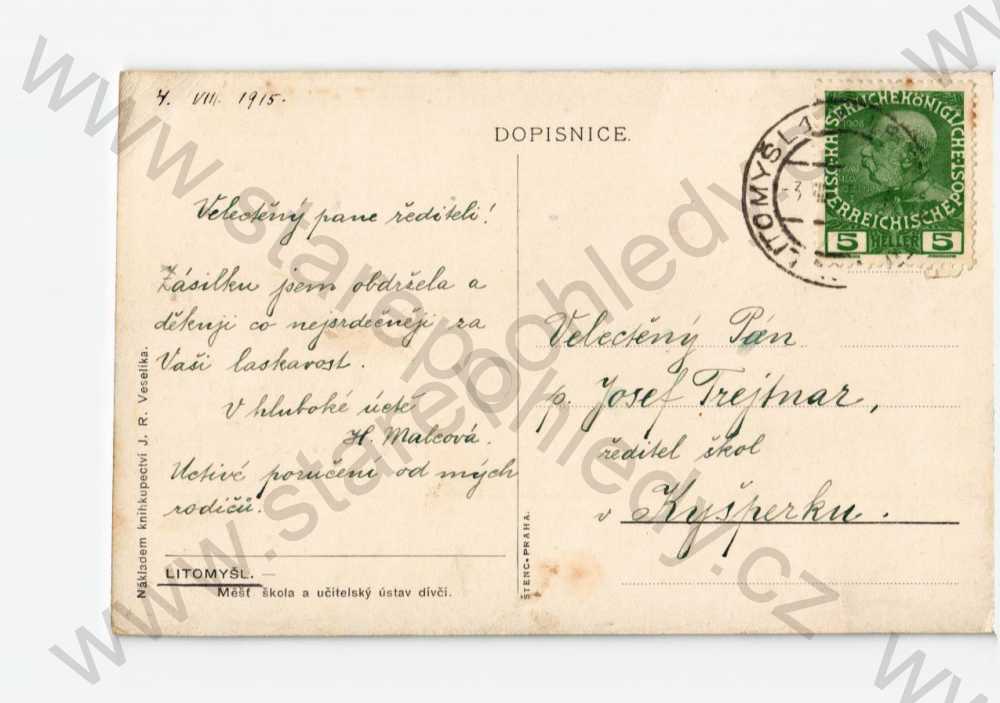 4. VIII. 1915.
DOPISNICE.
Velectěný pane řediteli!
Zásilku jsem obdržela a
děkuji co nejsrdečněji za
Vaši laskavost.
V hluboké úctě
H. Malcová.
Uctivé poručení od mých
rodičů.
LITOMYŠL. —
Měšť škola a učitelský ústav dívčí.
Nákladem knihkupectví J. R. Veselíka.
ŠTENC-PRAHA.
LITOMYŠL 1
3 VIII
KAISERLICHE KÖNIGLICHE
ÖSTERREICHISCHE POST
1908
5 HELLER 5
Velectěný Pán
p. Josef Trejtnar,
ředitel škol
v Kyšperku.
www.starepohledy.cz
www.starepohledy.cz